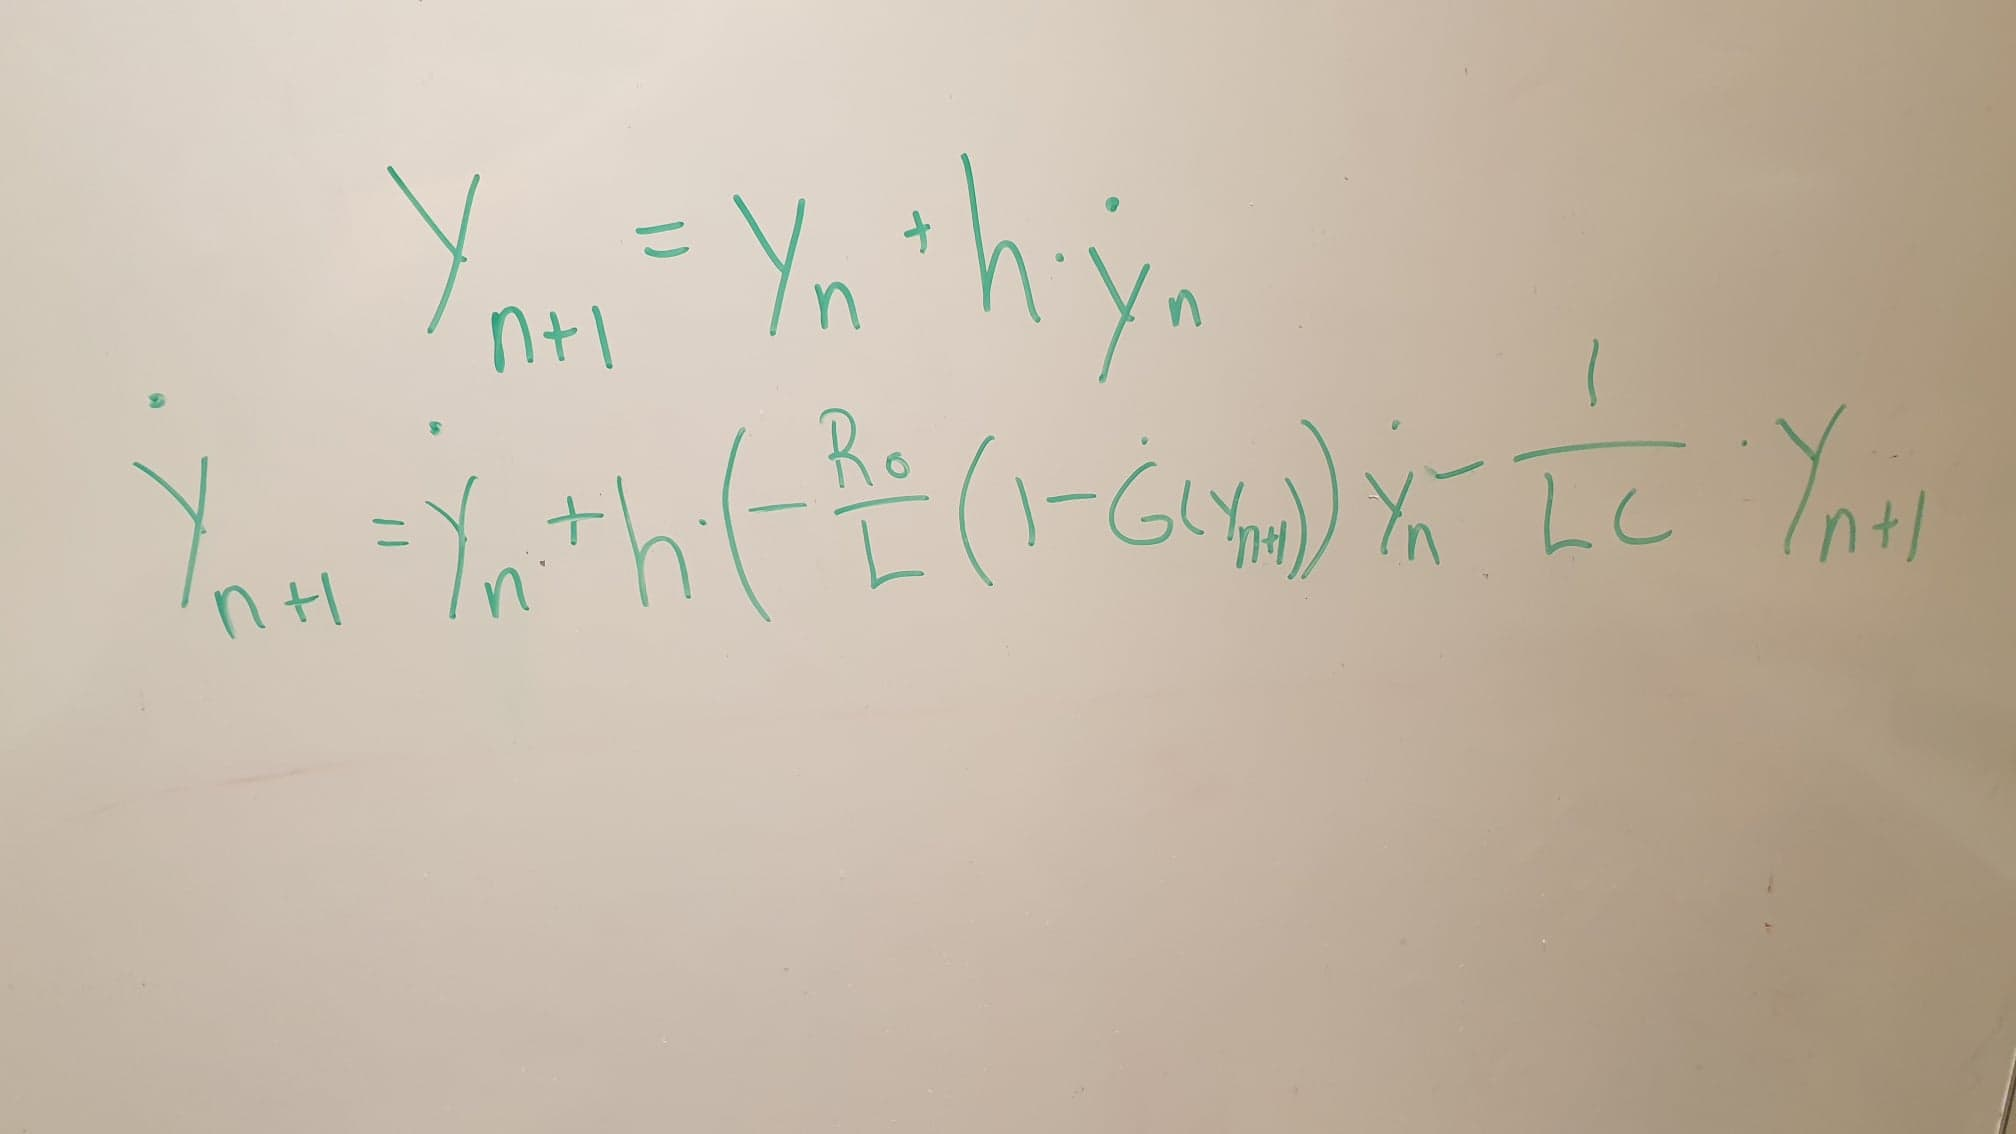 Y_{n+1} = Y_n + h · ẏ_n
Ẏ_{n+1} = Ẏ_n + h · (- R_0/L (1 - Ġ(Y_{n+1})) Ẏ_n - 1/LC · Y_{n+1}